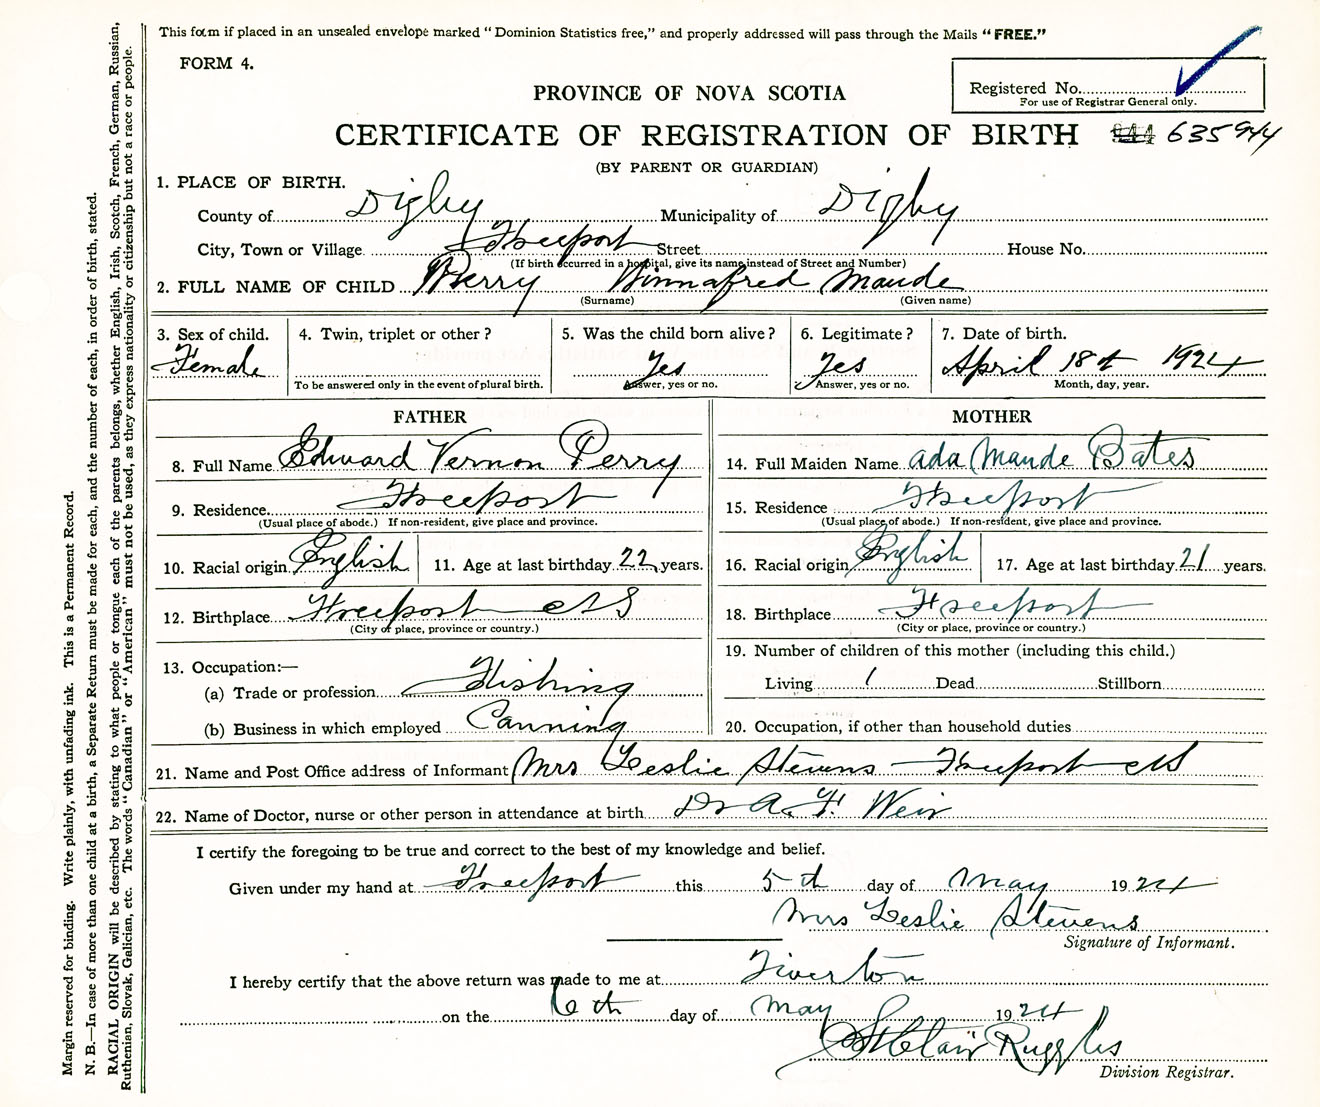 This form if placed in an unsealed envelope marked "Dominion Statistics free," and properly addressed will pass through the Mails "FREE."
FORM 4.
Registered No.
For use of Registrar General only.
PROVINCE OF NOVA SCOTIA
CERTIFICATE OF REGISTRATION OF BIRTH 635944
(BY PARENT OR GUARDIAN)
1. PLACE OF BIRTH.
County of Digby Municipality of Digby
City, Town or Village Freeport Street House No.
(If birth occurred in a hospital, give its name instead of Street and Number)
2. FULL NAME OF CHILD Perry Winnafred Maude
(Surname) (Given name)
3. Sex of child. 4. Twin, triplet or other? 5. Was the child born alive? 6. Legitimate? 7. Date of birth.
Female Yes Yes April 18th 1924
To be answered only in the event of plural birth. Answer, yes or no. Answer, yes or no. Month, day, year.
FATHER
8. Full Name Edward Vernon Perry
9. Residence Freeport
(Usual place of abode.) If non-resident, give place and province.
10. Racial origin English 11. Age at last birthday 22 years.
12. Birthplace Freeport NS
(City or place, province or country.)
13. Occupation:—
(a) Trade or profession Fishing
(b) Business in which employed Canning
MOTHER
14. Full Maiden Name Ada Maude Bates
15. Residence Freeport
(Usual place of abode.) If non-resident, give place and province.
16. Racial origin English 17. Age at last birthday 21 years.
18. Birthplace Freeport
(City or place, province or country.)
19. Number of children of this mother (including this child.)
Living 1 Dead Stillborn
20. Occupation, if other than household duties
21. Name and Post Office address of Informant Mrs Leslie Stevens Freeport NS
22. Name of Doctor, nurse or other person in attendance at birth Dr A. F. Weir
I certify the foregoing to be true and correct to the best of my knowledge and belief.
Given under my hand at Freeport this 5th day of May 1924
Mrs Leslie Stevens
Signature of Informant.
I hereby certify that the above return was made to me at Tiverton
on the 6th day of May 1924
St Clair Ruggles
Division Registrar.
Margin reserved for binding. Write plainly, with unfading ink. This is a Permanent Record.
N. B.—In case of more than one child at a birth, a Separate Return must be made for each, and the number of each, in order of birth, stated.
RACIAL ORIGIN will be described by stating to what people or tongue each of the parents belongs, whether English, Irish, Scotch, French, German, Russian,
Ruthenian, Slovak, Galician, etc. The words "Canadian" or "American" must not be used, as they express nationality or citizenship but not a race or people.